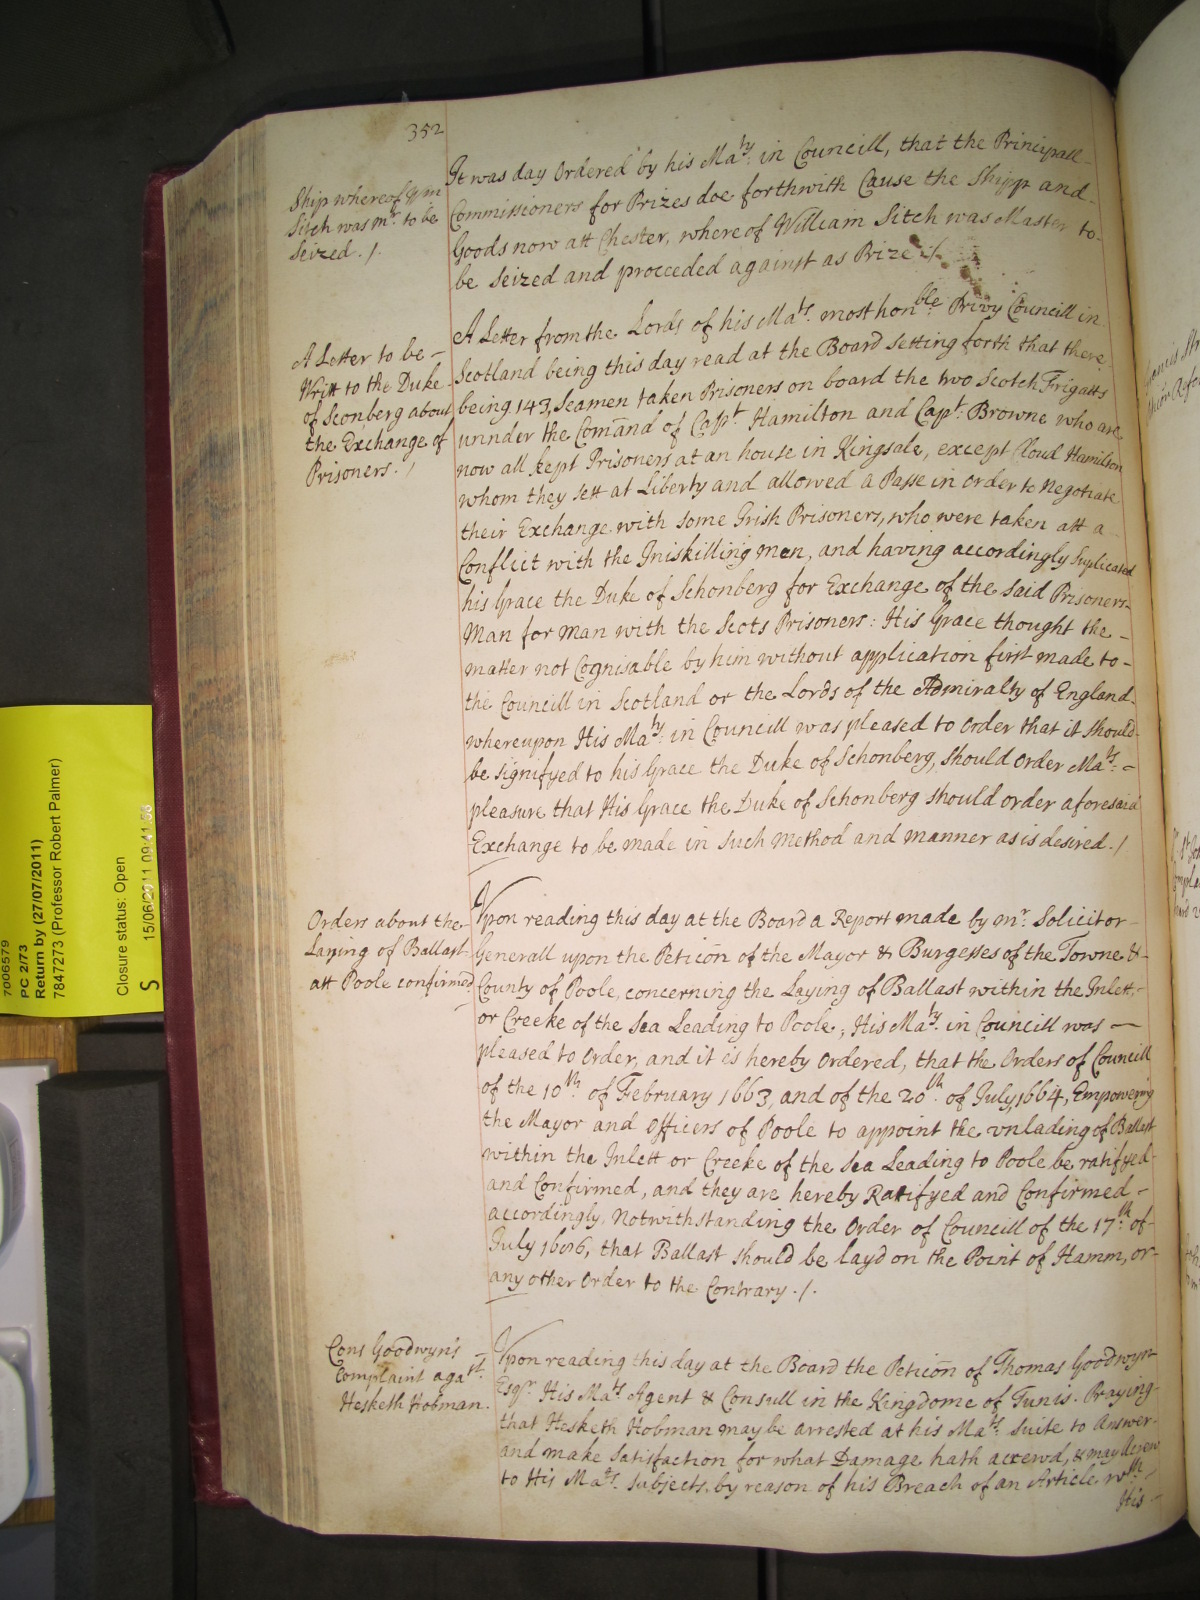 352
Ship whereof Wm
Sitch was mr. to be
Seized ./.
It was day Ordered by his Maty. in Councill, that the Principall
Commissioners for Prizes doe forthwith Cause the Shipp and
Goods now att Chester, whereof William Sitch was Master to
be Seized and proceeded against as Prize ./.
A Letter to be
Writt to the Duke
of Sconberg about
the Exchange of
Prisoners. /
A Letter from the Lords of his Mats. most honble. Privy Councill in
Scotland being this day read at the Board setting forth that there
being 143 Seamen taken Prisoners on board the two Scotch Frigatts
unnder the Comand of Capt. Hamilton and Capt: Browne who are
now all kept Prisoners at an house in Kingsale, except Cloud Hamilton
whom they sett at Liberty and allowed a Passe in Order to Negotiate
their Exchange with some Irish Prisoners, who were taken att a
Conflict with the Iniskilling men, and having accordingly Suplicated
his Grace the Duke of Schonberg for Exchange of the said Prisoners
Man for Man with the Scots Prisoners: His Grace thought the
matter not Cognisable by him without application first made to
the Councill in Scotland or the Lords of the Admiralty of England
whereupon His Maty. in Councill was pleased to Order that it should
be signifyed to his Grace the Duke of Schonberg, should Order Mats:
pleasure that His Grace the Duke of Schonberg should order aforesaid
Exchange to be made in such Method and manner as is desired ./
Orders about the
Laying of Ballast
att Poole confirmed
Upon reading this day at the Board a Report made by mr. Solicitor
Generall upon the Peticōn of the Mayor & Burgesses of the Towne &
County of Poole, concerning the Laying of Ballast within the Inlett
or Creeke of the Sea Leading to Poole, His Maty. in Councill was
pleased to Order, and it is hereby Ordered, that the Orders of Councill
of the 10th. of February 1663, and of the 20th. of July 1664, Empowering
the Mayor and Officers of Poole to appoint the vnlading of Ballast
within the Inlett or Creeke of the Sea Leading to Poole be ratifyed
and Confirmed, and they are hereby Ratifyed and Confirmed
accordingly, Notwithstanding the Order of Councill of the 17th. of
July 1686, that Ballast should be layd on the Point of Hamm, or
any other Order to the Contrary ./.
Cons Goodwyn's
Complaint agast.
Hesketh Hobman.
Upon reading this day at the Board the Peticōn of Thomas Goodwyn
Esqr. His Mats. Agent & Consull in the Kingdome of Tunis. Praying
that Hesketh Hobman may be arrested at his Mats. Suite to Answer
and make Satisfaction for what Damage hath accrewd, & may Accrew
to His Mats. Subjects, by reason of his Breach of an Article wth
His
7006579
PC 2/73
Return by (27/07/2011)
7847273 (Professor Robert Palmer)
Closure status: Open
S
15/06/2011 09:41:58